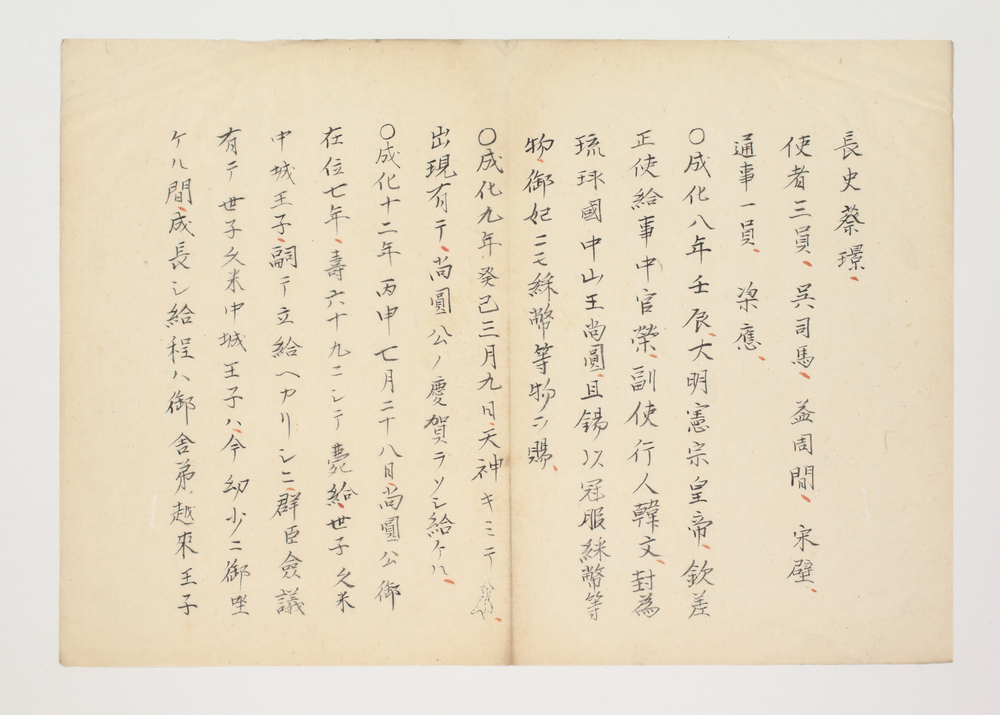 長史蔡璟、
使者三員、呉司馬、益周間、宋壁、
通事一員、梁應、
○成化八年壬辰、大明憲宗皇帝、欽差
正使給事中官榮、副使行人韓文、封為
琉球國中山王尚圓、且錫以冠服綵幣等
物、御妃ニモ綵幣等物ヲ賜、
○成化九年癸已三月九日、天神キミテ
出現有テ、尚圓公ノ慶賀ヲソシ給ケル、
○成化十二年丙申七月二十八日、尚圓公御
在位七年、壽六十九ニシテ薨給、世子久米
中城王子、嗣テ立給ヘカリシニ、群臣僉議
有テ世子久米中城王子ハ、今幼少ニ御坐
ケル間、成長シ給程ハ御舍弟越來王子